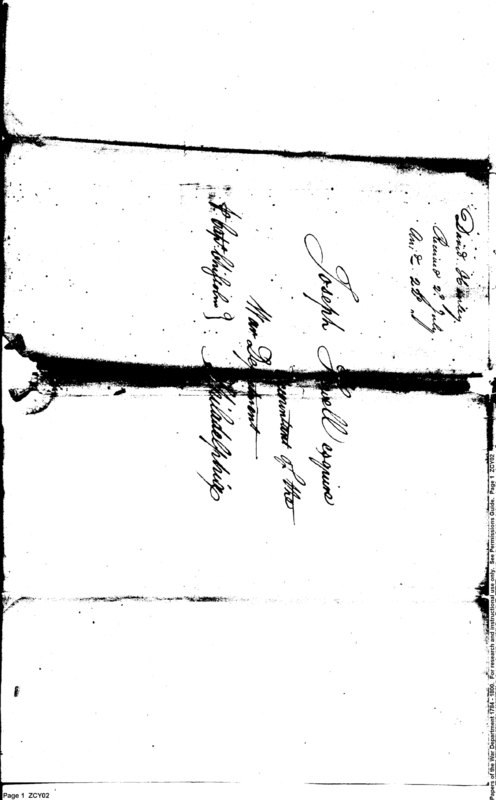 David Henley
Received 2d July
Ans'd 28
Joseph Howell esquire
Accountant of the
War Department
Philadelphia
pr. Capt. Chisholm }
Page 1 ZCY02
Papers of the War Department 1784 - 1800. For research and instructional use only. See Permissions Guide. Page 1 ZCY02